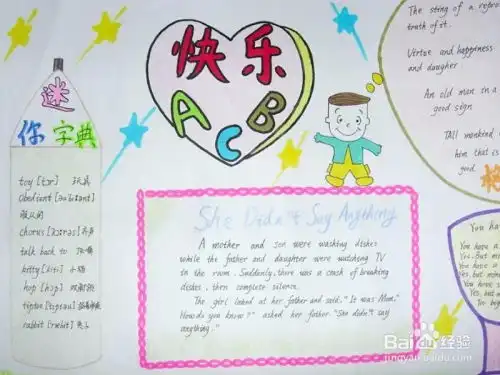 快乐
A C B
迷
你字典
toy [tɔɪ] 玩具
Obedient
chorus
talk back to
kitty 小猫
hop [hɔp]
tiptoe
rabbit 兔子
She Didn't Say Anything
A mother and son were washing dishes
while the father and daughter were watching TV
in the room. Suddenly, there was a crash of breaking
dishes, then complete silence.
The girl looked at her father and said, "It was Mom."
"How do you know?" asked her father. "She didn't say
anything."
The sting of a
truth of it.
Virtue and happiness
and daugher
An old man in a
good sign
Tall mankind
him that is
good.
You ha
You have a
Yes, But m
You have a
Yes, but m
You have
Yes, but
To
Baidu 经验
jingyan.baidu.com